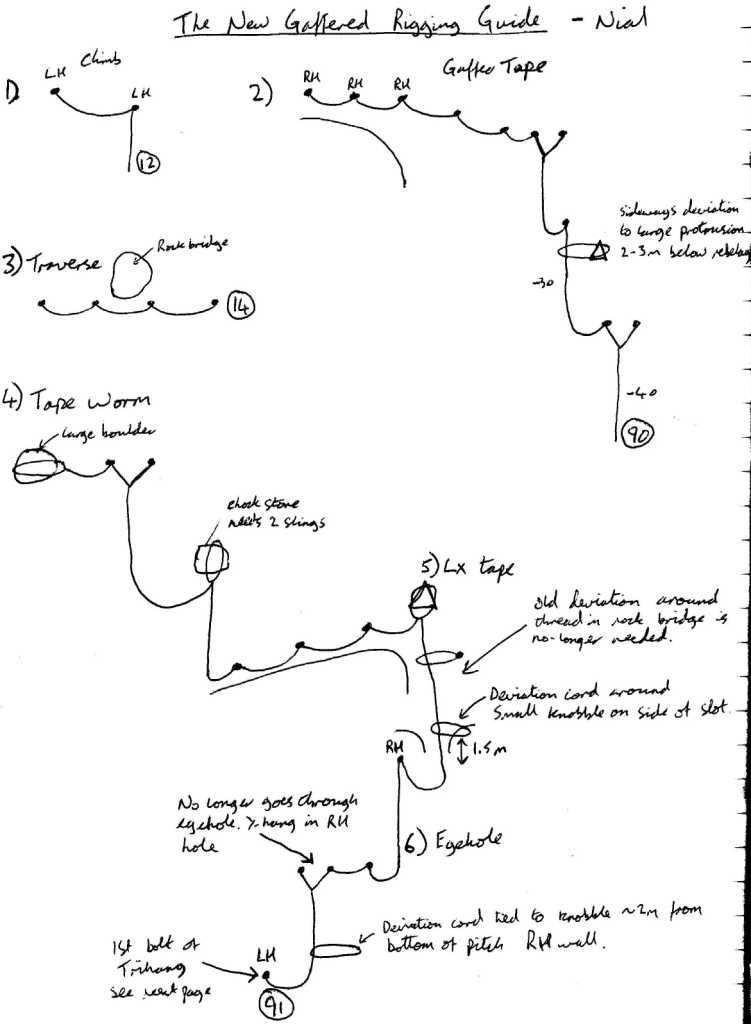 The New Gaffered Rigging Guide - Nial
1)
Climb
LH
LH
12
2)
Gaffer Tape
RH
RH
RH
sideways deviation
to large protrusion
2-3m below rebelay
-30
-40
90
3) Traverse
Rock bridge
14
4) Tape Worm
Large boulder
chock stone
needs 2 slings
5) Lx tape
old deviation around
thread in rock bridge is
no-longer needed.
Deviation cord around
small knobble on side of slot.
1.5m
RH
No longer goes through
eyehole. Y-hang in RH
hole
6) Eyehole
Deviation cord tied to knobble ~2m from
bottom of pitch RH wall.
1st bolt of
Trihang
see next page
LH
91